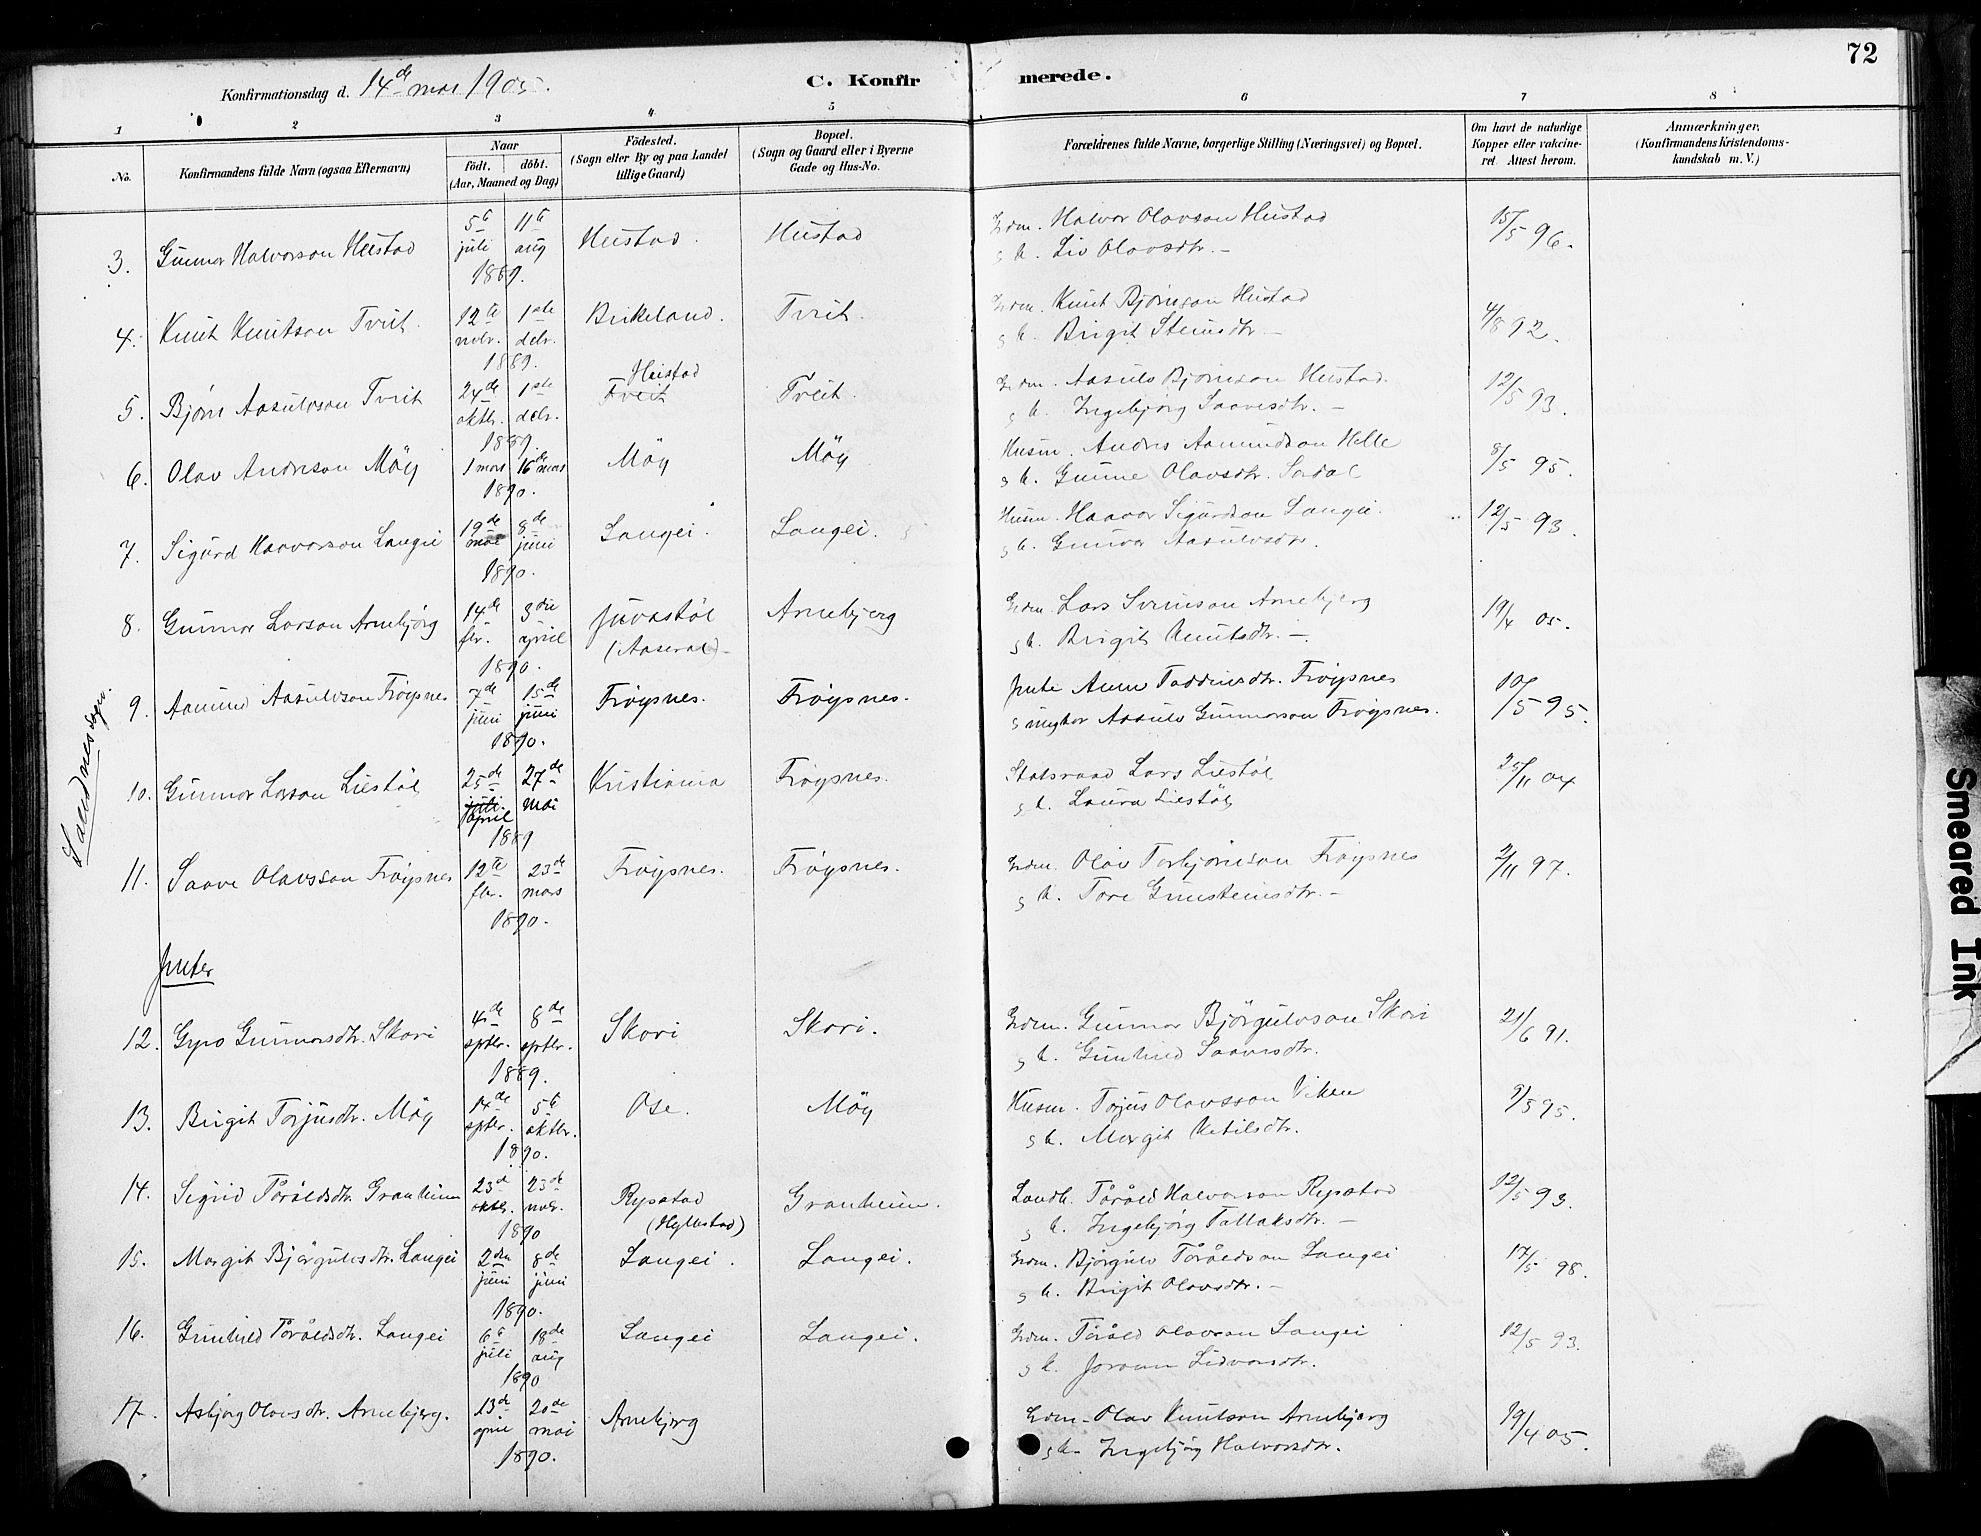 72
Konfirmationsdag d. 14de mai 1905.
C. Konfirmerede.
1 2 3 4 5 6 7 8
No.
Konfirmandens fulde Navn (ogsaa Efternavn)
Naar
Födt. döbt.
(Aar, Maaned og Dag)
Födested.
(Sogn eller By og paa Landet
tillige Gaard)
Bopæl.
(Sogn og Gaard eller i Byerne
Gade og Hus-No.
Forældrenes fulde Navne, borgerlige Stilling (Næringsvei) og Bopæl.
Om havt de naturlige
Kopper eller vakcine-
ret. Attest herom.
Anmærkninger.
(Konfirmandens Kristendoms-
kundskab m. V.)
3. Gunnar Halvorson Heistad 5te juli 11te aug 1889. Heistad. Heistad Grdm. Halvor Olavson Heistad
g k. Liv Olavsdtr. – 15/5 96.
4. Knut Knutson Tveit. 12te nvbr. 1ste debr. 1889. Birkeland. Tveit. Grdm. Knut Bjørnson Heistad
g k. Birgit Steinsdtr. – 4/8 92.
5. Bjørn Aasulvson Tveit 24de oktbr. 1ste debr. 1889. Heistad
Tveit Tveit. Grdm. Aasulv Bjørnson Heistad.
g k. Ingebjørg Saavesdtr. – 12/5 93.
6. Olav Andreson Möy 1 mars 16de mars 1890. Möy Möy Husm. Andres Aamundson Helle
g k. Gunne Olavsdtr. 8/5 95.
7. Sigurd Haavorson Langei 19de mai 8de juni 1890. Langei. Langei. Husm. Haavor Sigurdson Langei.
g k. Gunvor Aasulvsdtr. 12/5 93.
8. Gunnar Larson Arnebjørg 14de fbr. 3die april 1890. Juvastöl
(Aaseral) Arnebjerg Grdm. Lars Sveinson Arnebjerg
g k. Birgit Knutsdtr. – 19/4 05.
Sandnes sogn.
9. Aamund Aasulvson Fröysnes 7de juni 15de juni 1890. Fröysnes. Fröysnes. Jente Anne Taddeusdtr. Fröysnes
g ungkar Aasulv Gunnarson Fröysnes. 10/5 95.
10. Gunnar Larson Liestöl 25de juli april 27de mai 1889 Kristiania Fröysnes. Statsraad Lars Liestöl
g k. Laura Liestöl 25/11 04
11. Saave Olavsson Fröysnes 12te fbr. 23de mars 1890. Fröysnes. Fröysnes. Grdm. Olav Torbjørnson Fröysnes
g k. Tore Gunsteinsdtr. – 2/11 97.
Jenter
12. Gyro Gunnarsdtr. Skori 4de sptbr. 8de sptbr. 1889. Skori Skori. Grdm. Gunnar Björgulvson Skori
g k. Gunhild Saavesdtr. 21/6 91.
13. Birgit Torjusdtr. Möy 14de sptbr. 5te oktbr. 1890. Ose. Möy Husm. Torjus Olavsson Viken
g k. Margit Ketilsdtr. 9/5 95.
14. Sigrid Töräldsdtr. Granheim 23d oktbr. 23de nvbr. 1890 Rysstad
(Hylestad) Granheim. Landh. Töräld Halvorson Rysstad
g k. Ingebjørg Tallaksdtr. – 12/5 93.
15. Margit Björgulvsdtr. Langei 2den juni 8de juni 1890. Langei. Langei. Grdm. Björgulv Töräldson Langei
g k. Birgit Olavsdtr. – 17/5 98.
16. Gunhild Töräldsdtr. Langei 6te juli 18de aug 1890 Langei Langei. Grdm. Töräld Olavson Langei
g k. Joraan Lidvorsdtr. 12/5 93.
17. Asbjørg Olavsdtr. Arnebjerg. 13de april 20de mai 1890. Arnebjerg Grdm. Olav Knutson Arnebjerg
g k. Ingebjørg Halvorsdtr. 19/4 05.
Smeared Ink